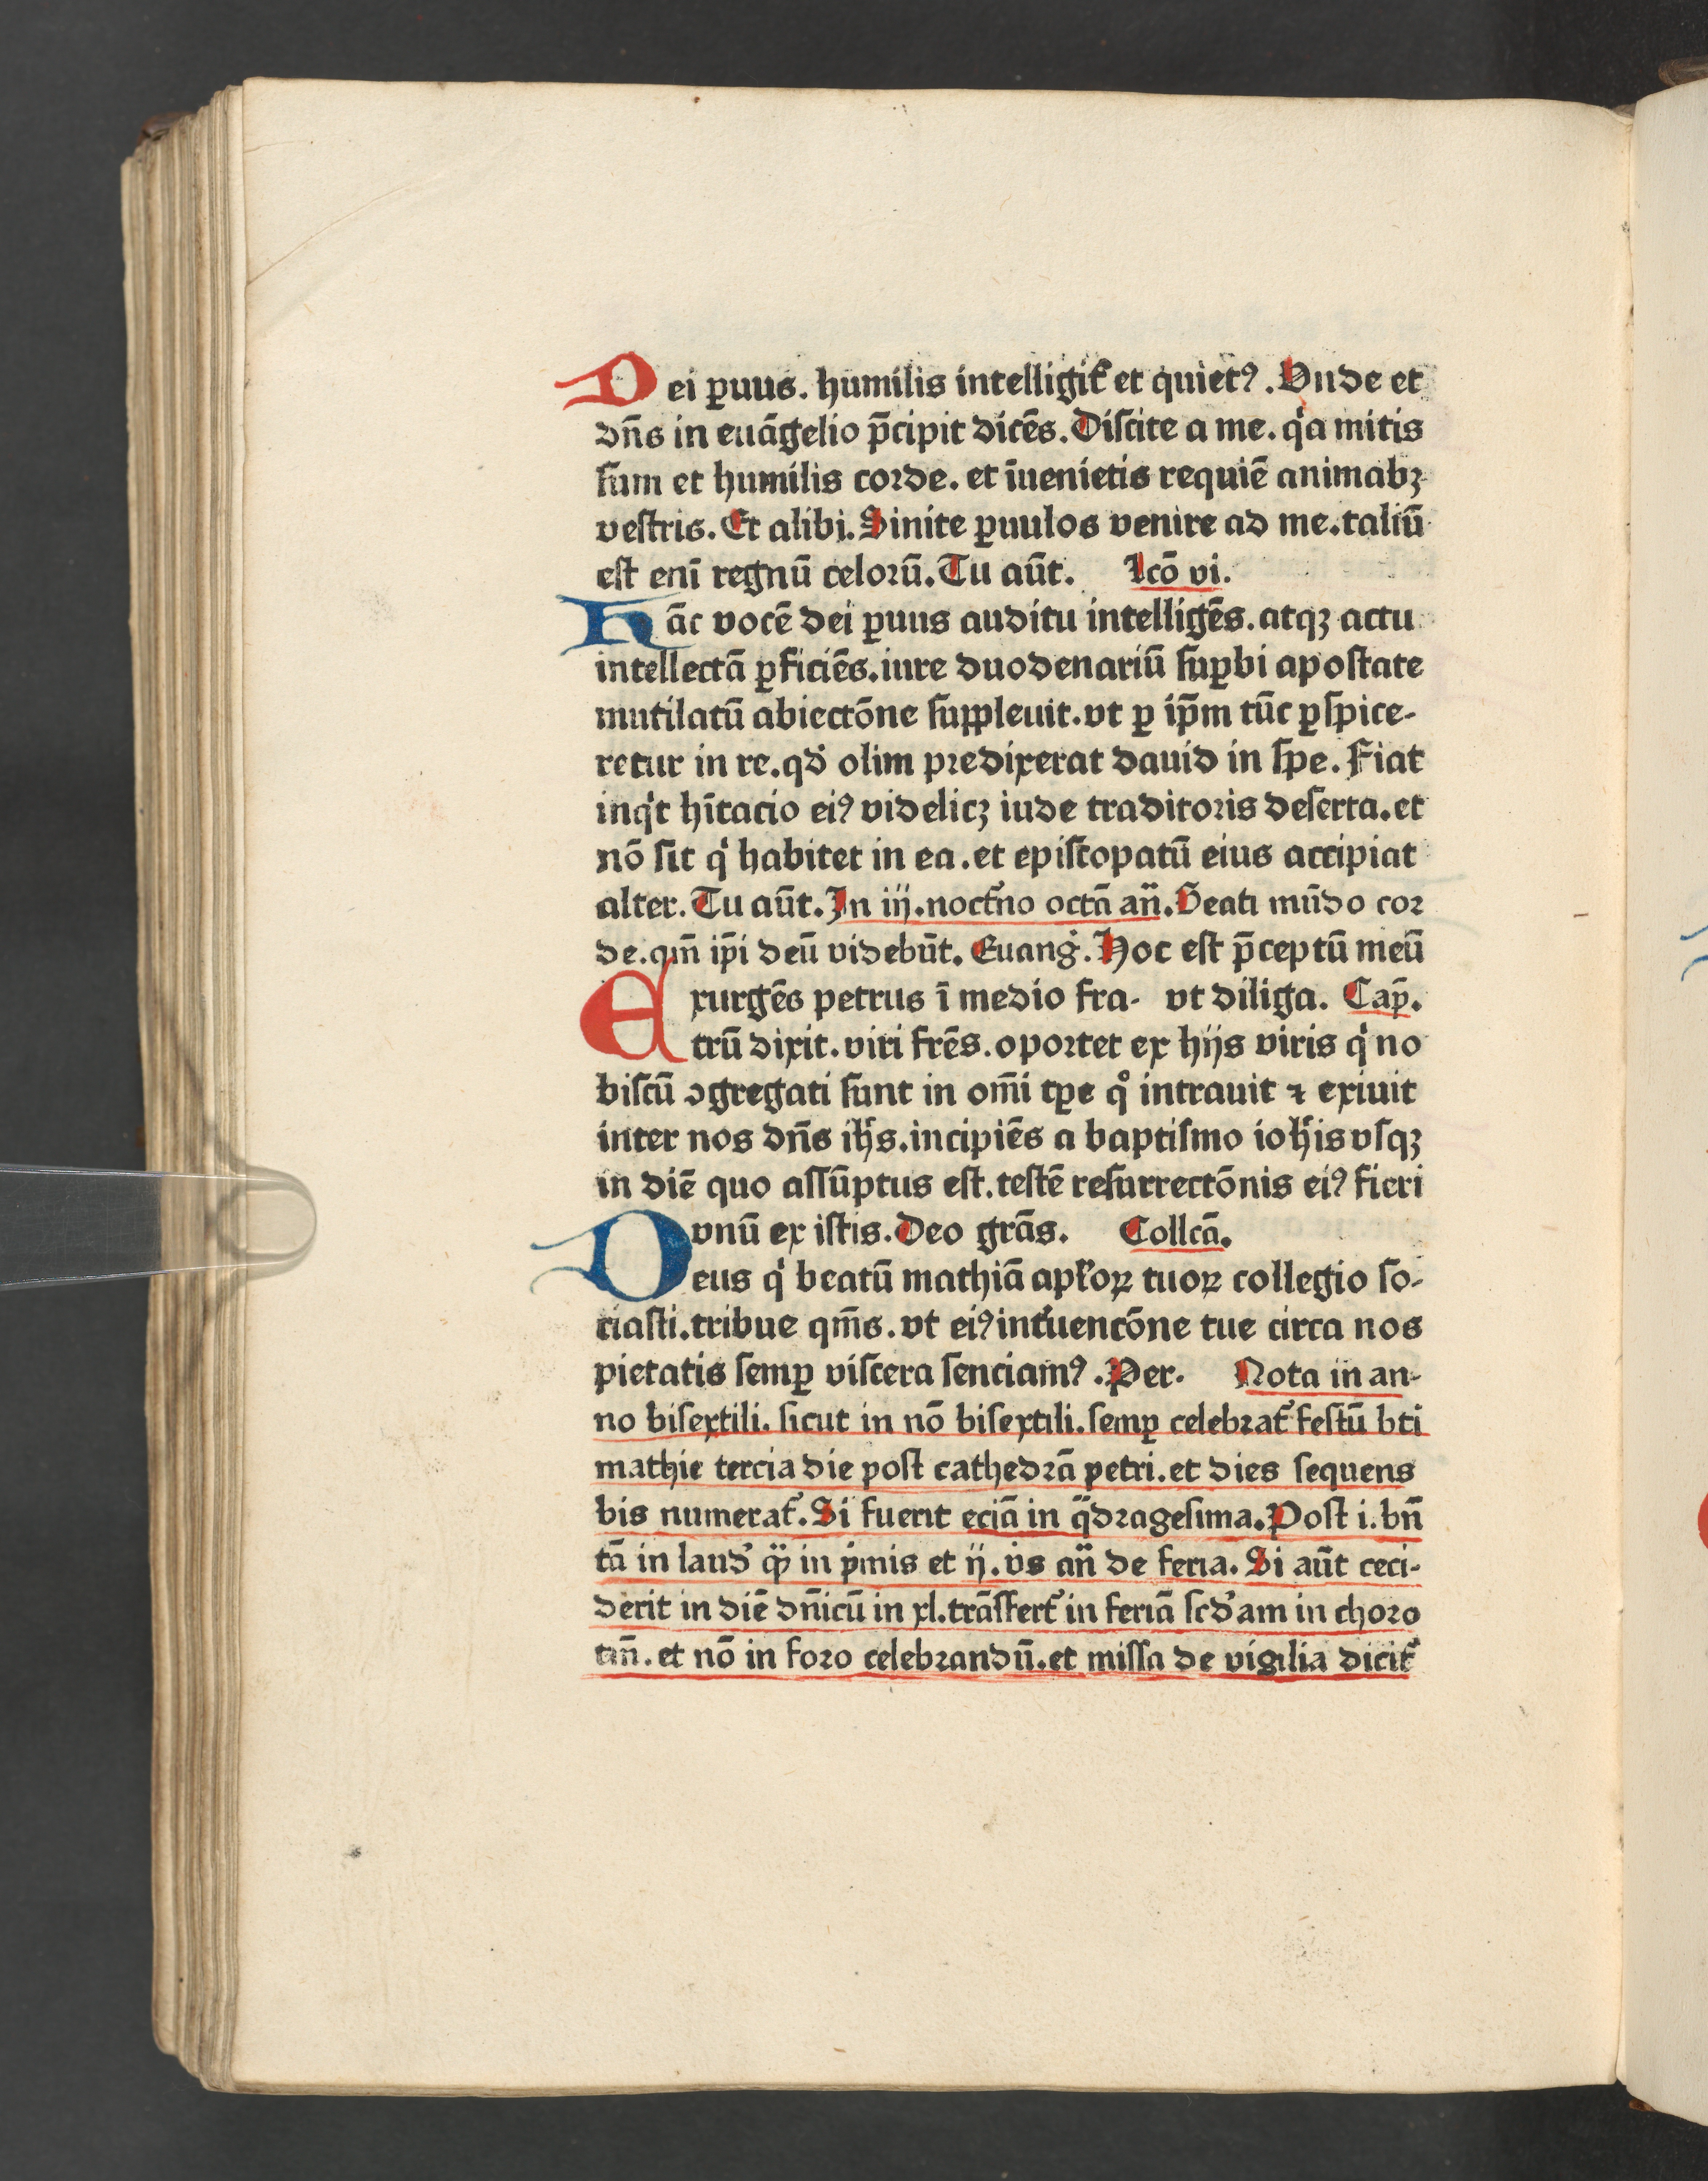 Dei ꝑuus. humilis intelligit᷑ et quietꝰ. Vnde et
dn̄s in euāgelio p̄cipit dicēs. Diſcite a me. qͥa mitis
ſum et humilis corde. et īuenietis requiē animabꝫ
veſtris. Et alibi. Sinite ꝑuulos venire ad me. taliū
eſt eni̅ regnū celorū. Tu aūt. Lcō vi.
Hāc vocē dei ꝑuus auditu intelligēs. atqꝫ actu
intellectā ꝑficiēs. iure duodenariū ſuꝑbi apoſtate
mutilatū abiectōne ſuppleuit. vt ꝑ ip̄m tūc ꝑſpice-
retur in re. qd̓ olim predixerat dauid in ſpe. Fiat
inqͥt hi̅tacio eiꝰ videlicꝫ iude traditoris deſerta. et
nō ſit qͥ habitet in ea. et epiſcopatū eius accipiat
alter. Tu aūt. In iij. noct᷑no octā an̄. Beati mūdo cor
de. qm̄ ip̄i deū videbūt. Euang̓. Hoc eſt p̄ceptū meū
Exurgēs petrus ī medio fra- vt diliga. Cap̄.
trū dixit. viri fr̄es. oportet ex hijs viris qͥ no
biſcū ꝯgregati ſunt in om̄i tꝑe qͦ intrauit ⁊ exiuit
inter nos dn̄s ih̄s. incipiēs a baptiſmo ioh̄is vſqꝫ
in diē quo aſſūptus eſt. teſtē reſurrectōnis eiꝰ fieri
vnū ex iſtis. Deo grās. Collcā.
Deus qͥ beatū mathiā apl̓oꝝ tuoꝝ collegio ſo-
ciaſti. tribue qm̄s. vt eiꝰ int᷑uencōne tue circa nos
pietatis ſemꝑ viſcera ſenciamꝰ. Per. Nota in an-
no biſextili. ſicut in nō biſextili. ſemꝑ celebrat᷑ feſtū bti
mathie tercia die poſt cathedrā petri. et dies ſequens
bis numerat᷑. Si fuerit eciā in qᷓdrageſima. Poſt i. bn̄
tā in laud̓ qꝫ in pͥmis et ij. vs̓ an̄ de feria. Si aūt ceci-
derit in diē dn̄icū in xl. trāſfert᷑ in feriā ſcd̓am in choro
tm̄. et nō in foro celebrandū. et miſſa de vigilia dicit᷑